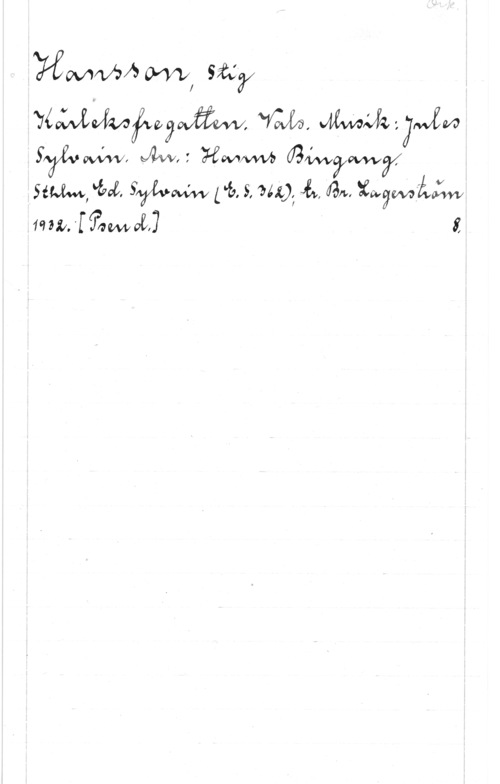 Ork.
Hansson, Stig
Kärleksfregatten. Vals. Musik: Jules
Sylvain. Arr.: Hanns Bingang.
Sthlm, Ed. Sylvain (E.S. 362); tr. Br. Lagerström
1932. [Pseud.] 8.